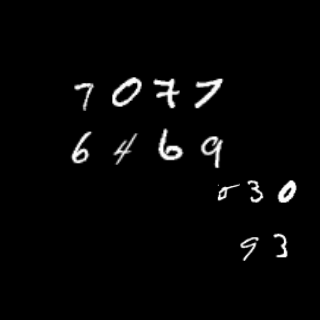 7077
6469
30
93